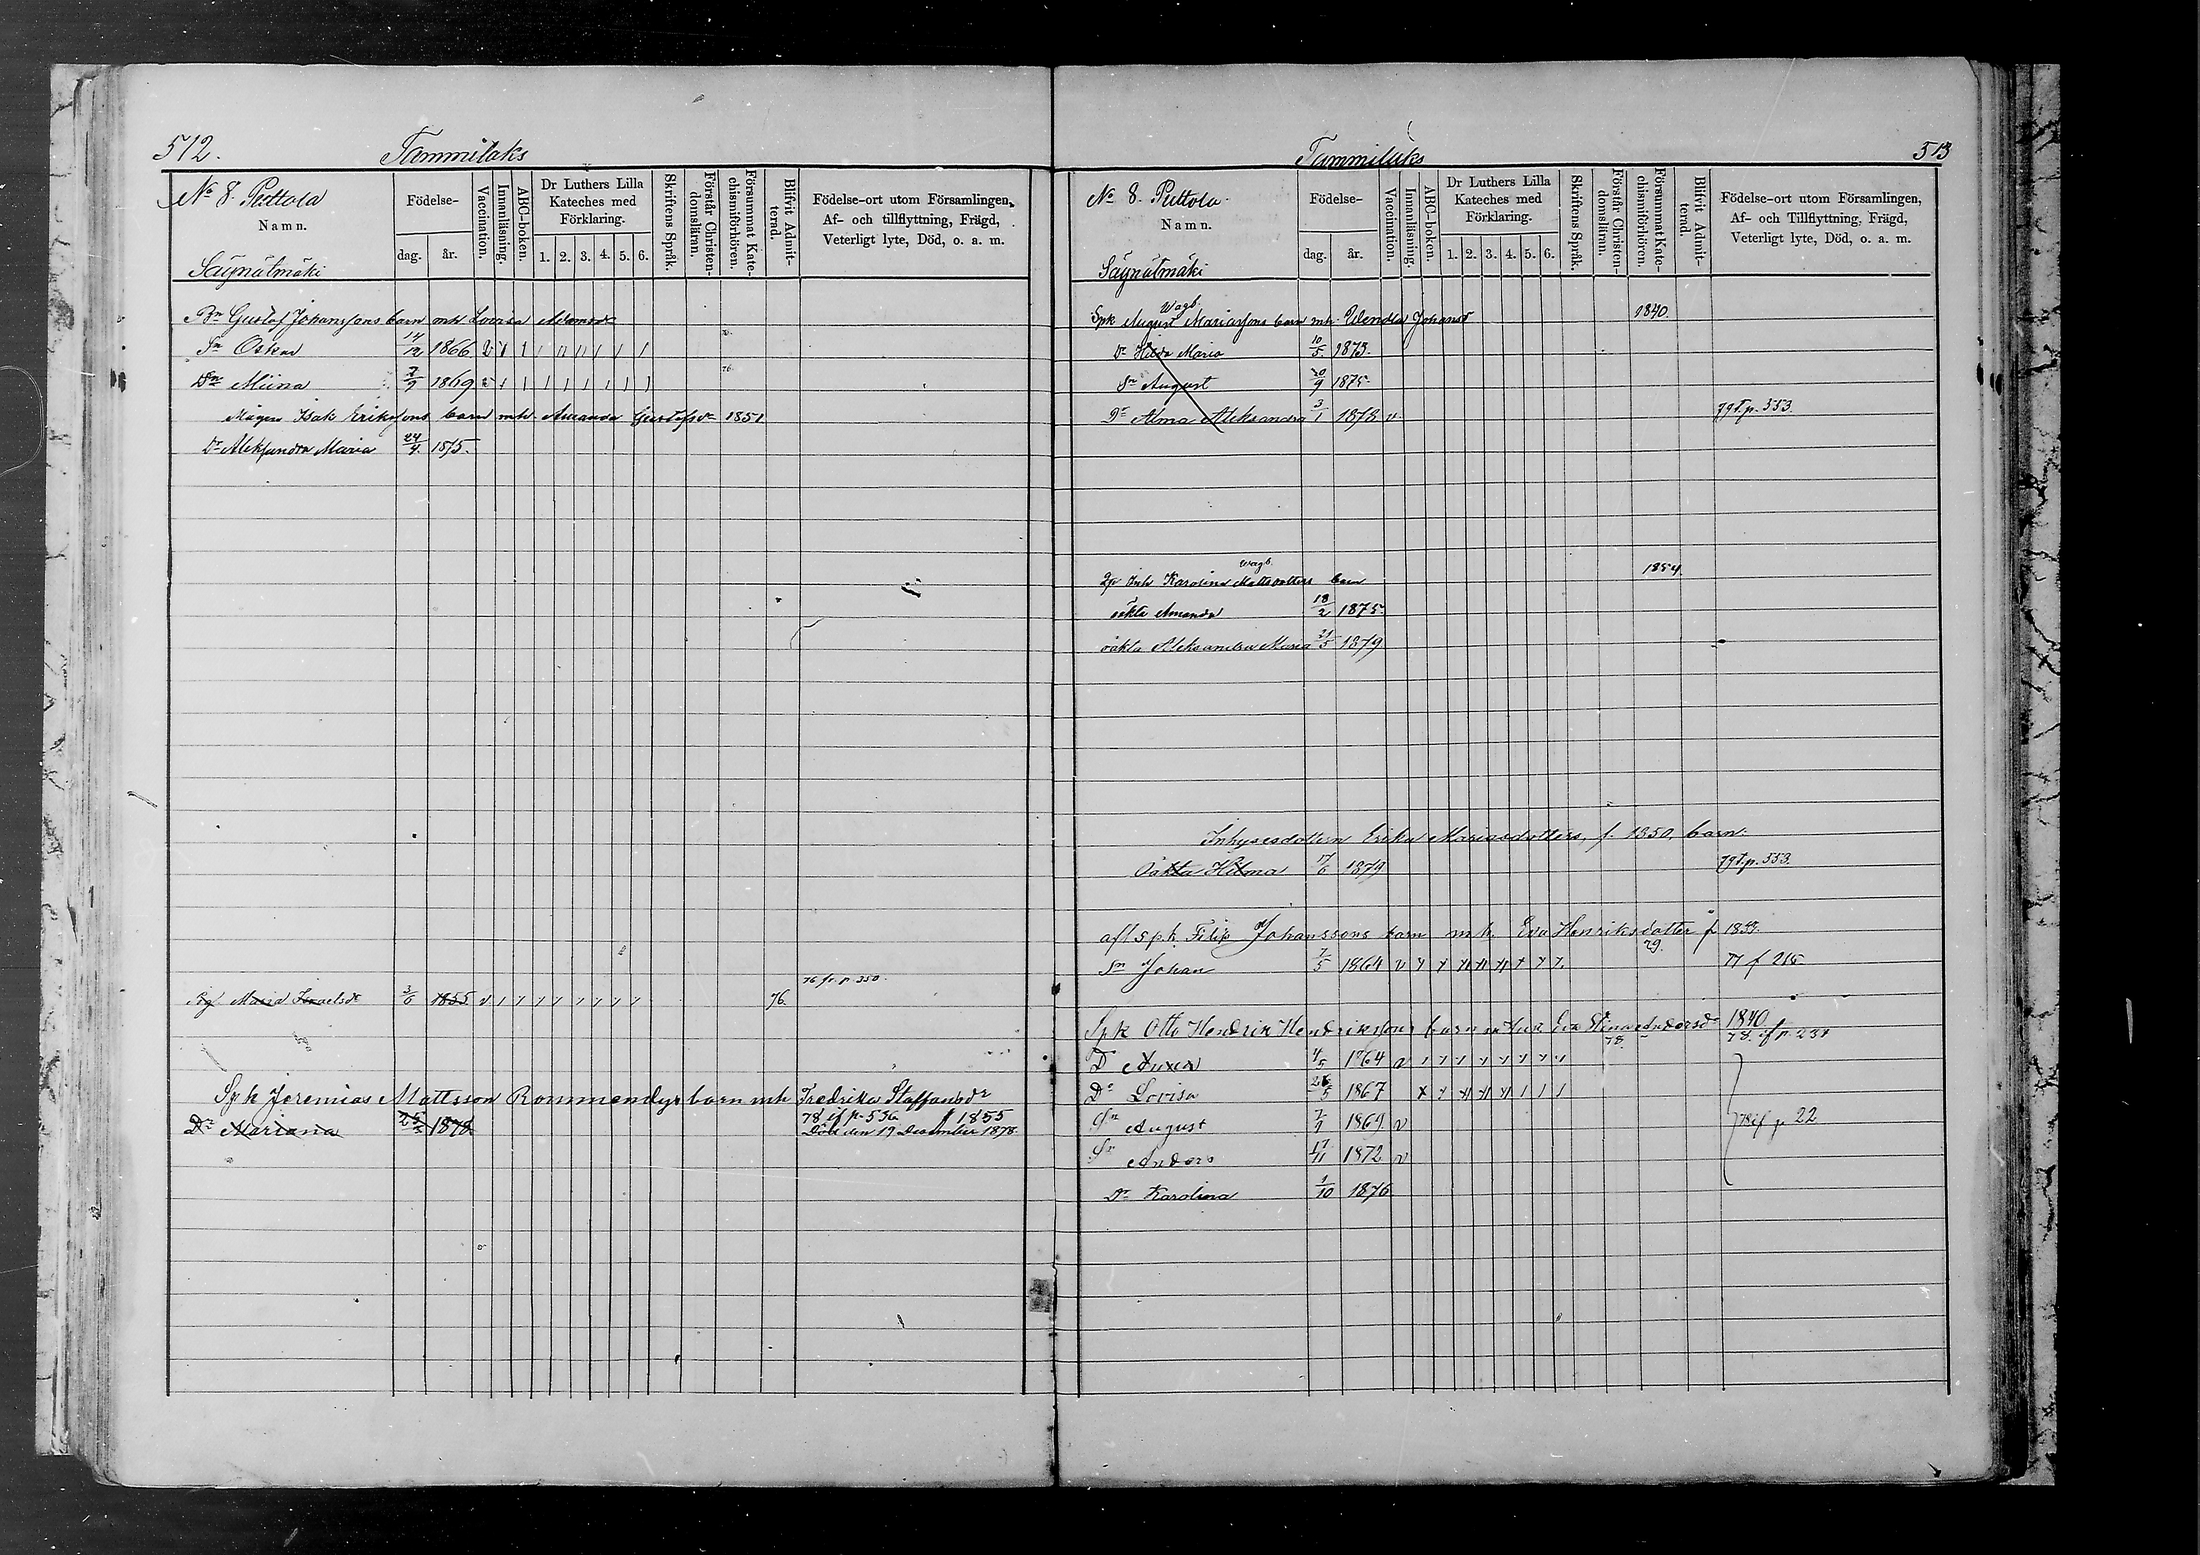 512.
Tammilaks
No 8. Puttola
Namn.
Säynätmäki
Födelse-
dag.
år.
Vaccination.
Innanläsning.
ABC-boken.
Dr Luthers Lilla
Kateches med
Förklaring.
1. 2. 3. 4. 5. 6.
Skriftens Språk.
Förstår Christen-
domsläran.
Försummat Kate-
chismiförhören.
Blifvit Admit-
terad.
Födelse-ort utom Församlingen,
Af- och tillflyttning, Frägd,
Veterligt lyte, Död, o. a. m.
Bn Gustaf Johanssons barn mh Lovisa Adamsdr
Sn Oskar 14/12 1866 v
Dr Miina 7/9 1869 v 76.
Mågen Isak Erikssons barn mh. Amanda Gustafsdr 1851
Dr Aleksandra Maria 24/4. 1875.
76 fr. p. 350.
Pig Maria Israelsdr 3/6 1855 v 76.
Spk Jeremias Mattsson Rommendys barn mh Fredrika Staffansdr
78 if p. 536 f 1855
Dr Mariana 25/3 1878 Död den 19 December 1878.
Tammilaks
513
No 8. Puttola.
Namn.
Säynätmäki
Födelse-
dag.
år.
Vaccination.
Innanläsning.
ABC-boken.
Dr Luthers Lilla
Kateches med
Förklaring.
1. 2. 3. 4. 5. 6.
Skriftens Språk.
Förstår Christen-
domsläran.
Försummat Kate-
chismiförhören.
Blifvit Admit-
terad.
Födelse-ort utom Församlingen,
Af- och Tillflyttning, Frägd,
Veterligt lyte, Död, o. a. m.
Wagb.
Spk August Mariassons barn mh. Wendla Johansd 1840.
Dr Hilda Maria 10/5 1873.
Sn August 20/9 1875.
Dr Alma Aleksandra 3/1 1878 v 79 t. p. 553.
wagb.
Karolina Mattsdotters barn 1854.
oäkta Amanda 18/2 1875.
oäkta Aleksandra Maria 21/5 1879
Inhysesdottern Erika Mariasdotters, f. 1850, barn.
Oäkta Hilma 17/6 1879 79 t. p. 553.
afl. sp.k. Filip Johanssons barn mh. Eva Henriksdotter f 1833.
79.
Sn Johan 1/5 1864 v 77 f 215
Spk Otto Hendrik Hendrikssons barn m hu Eva Stina Andersdr 1840
78. 78. if p. 231
Dr Anna 4/5 1864 v
Dr Lovisa 26/5 1867
Sn August 7/9 1869 v 78 if p 22
Sn Anders 17/11 1872 v
Dr Karolina 1/10 1876